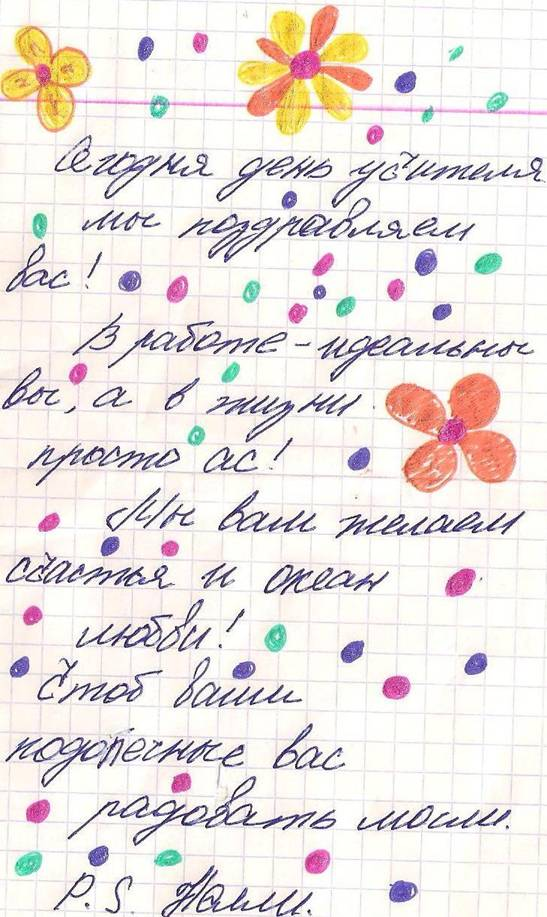 Сегодня день учителя
мы поздравляем
вас!
В работе - идеальны
вы, а в жизни
просто ас!
Мы вам желаем
счастья и океан
любви!
Чтоб ваши
подопечные вас
радовать могли.
P. S. Нелли.